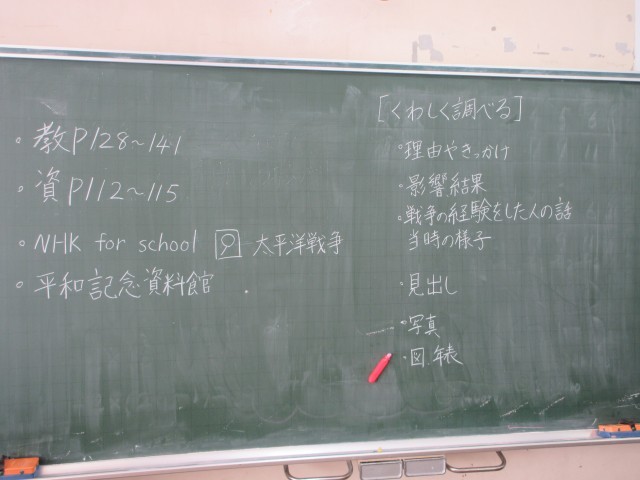 ・教P128~141
・資P112~115
・NHK for school 9 太平洋戦争
・平和記念資料館
[くわしく調べる]
・理由やきっかけ
・影響結果
・戦争の経験をした人の話
当時の様子
・見出し
・写真
・図.年表